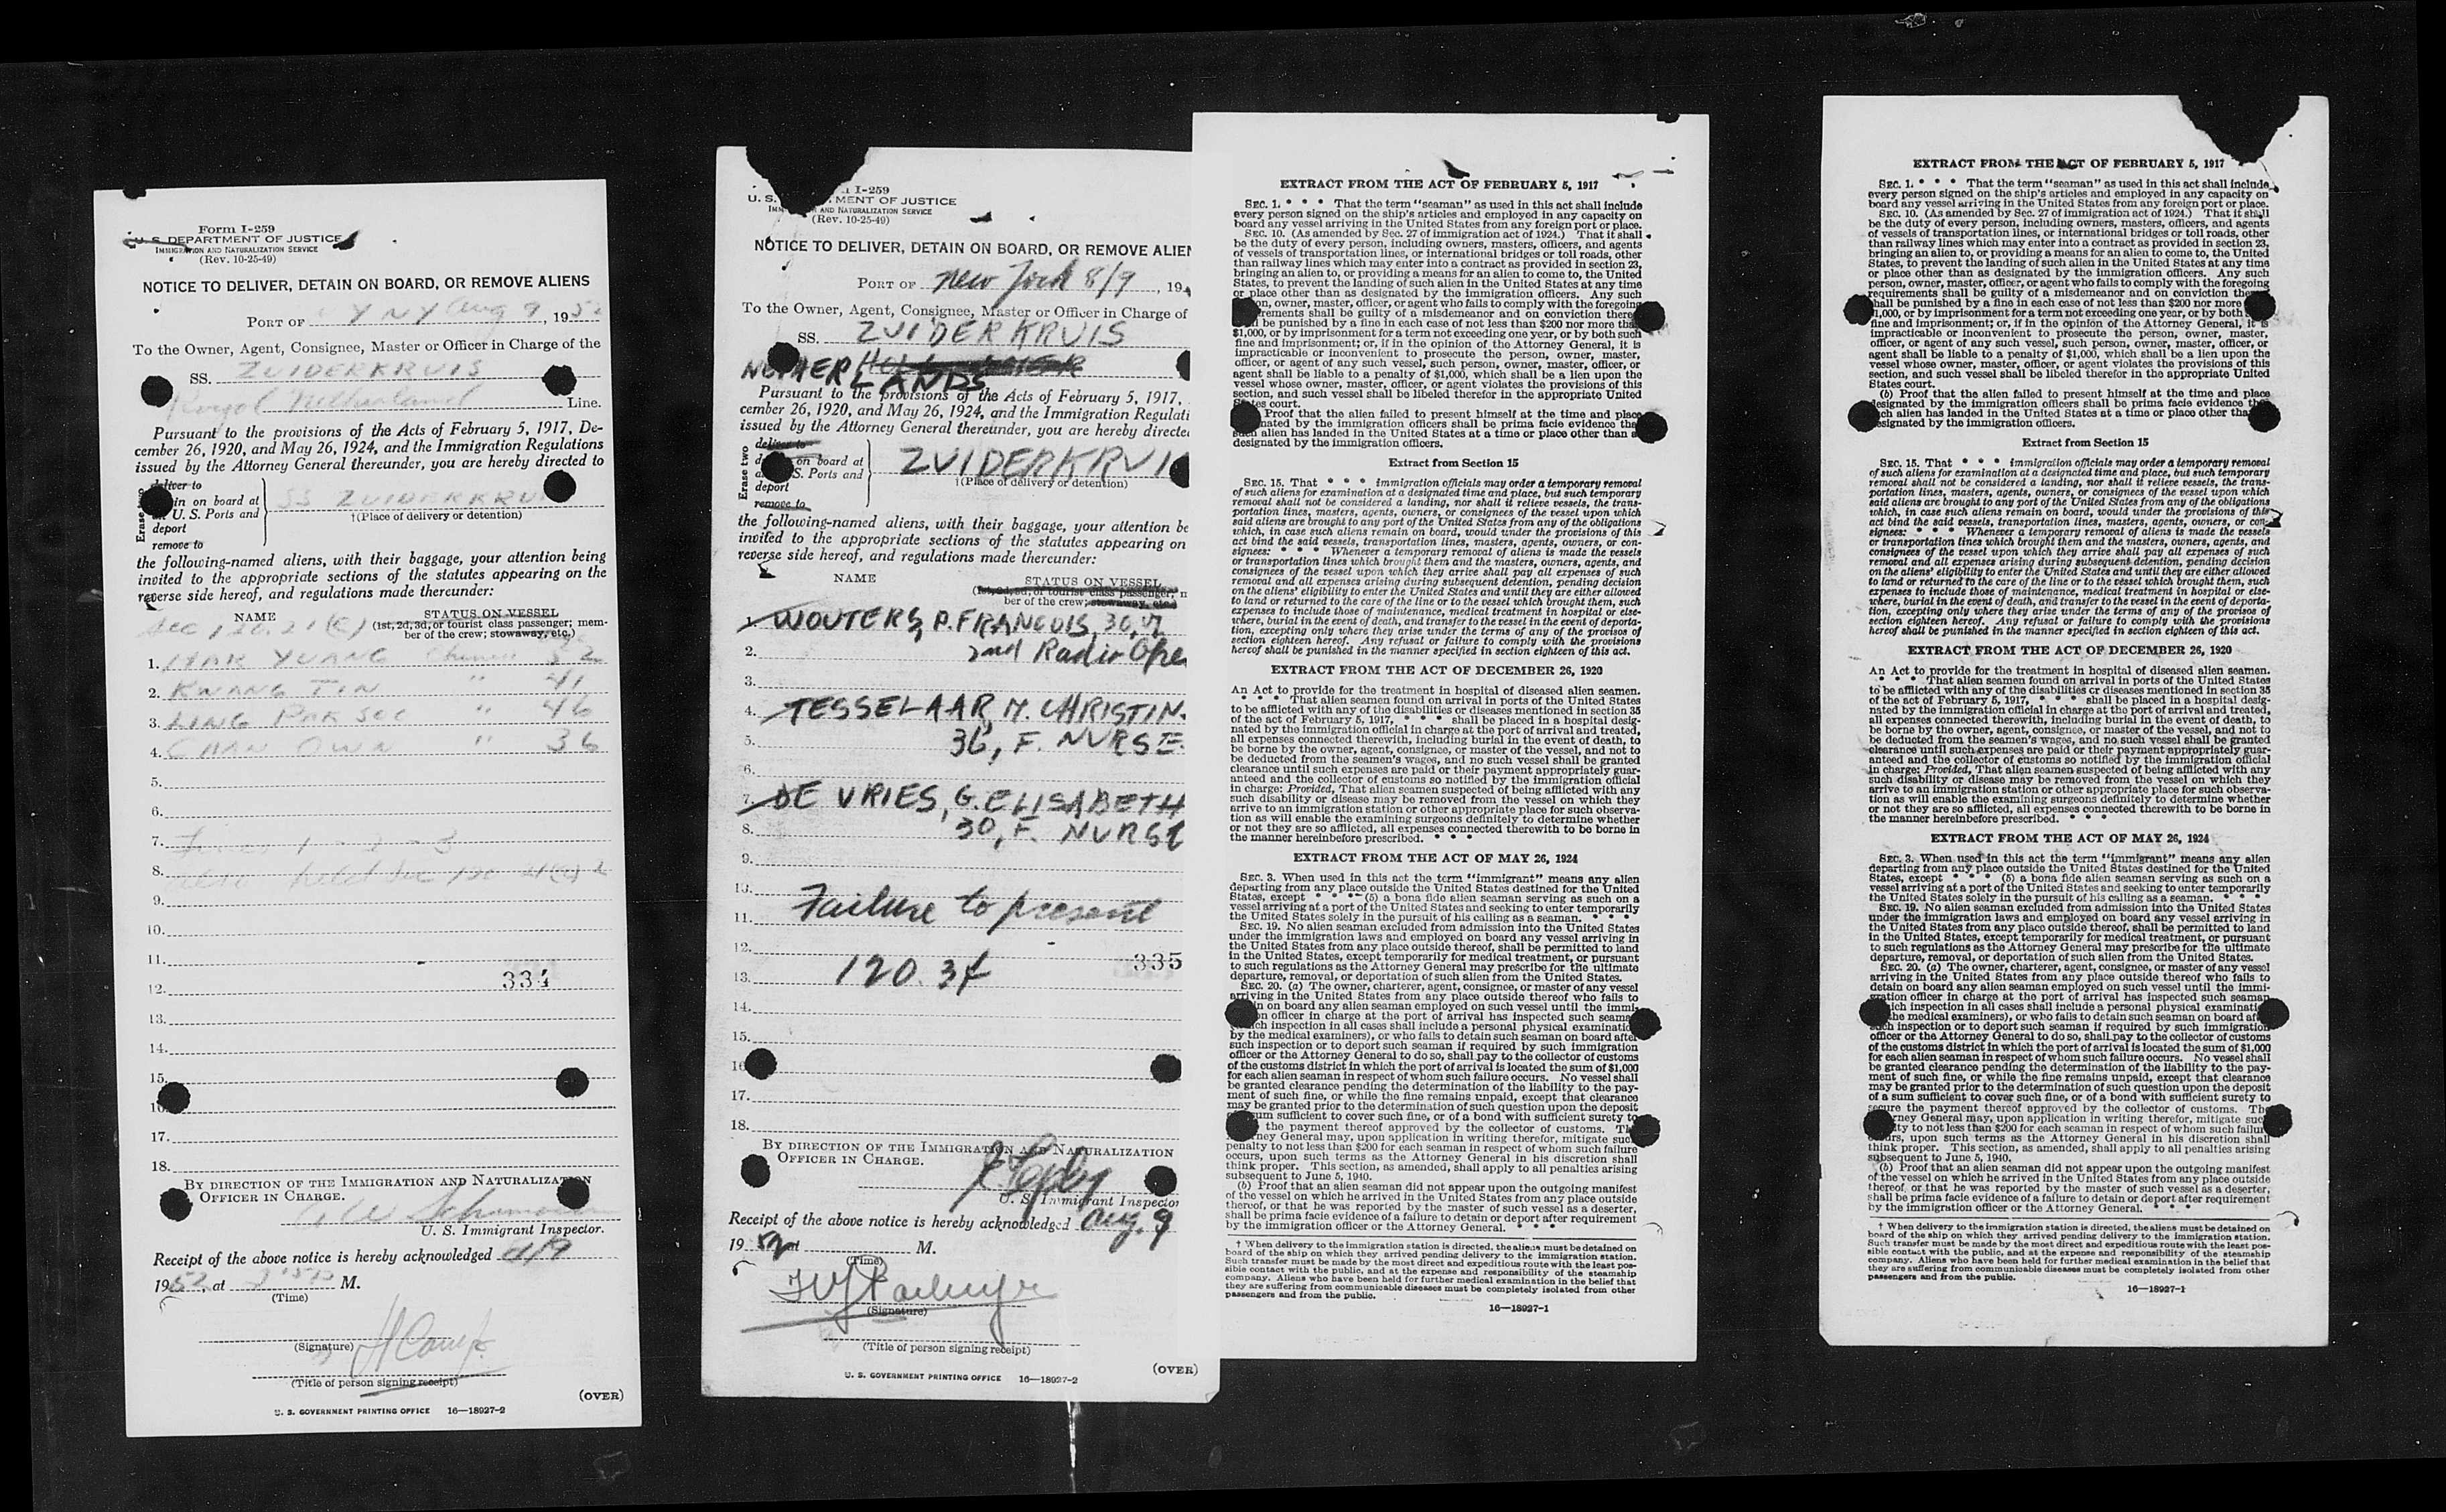 Form I-259
U. S. DEPARTMENT OF JUSTICE
IMMIGRATION AND NATURALIZATION SERVICE
(Rev. 10-25-49)
NOTICE TO DELIVER, DETAIN ON BOARD, OR REMOVE ALIENS
PORT OF Y NY Aug 9, 1952
To the Owner, Agent, Consignee, Master or Officer in Charge of the
SS. ZUIDERKRUIS
Royal Netherland Line.
Pursuant to the provisions of the Acts of February 5, 1917, De-
cember 26, 1920, and May 26, 1924, and the Immigration Regulations
issued by the Attorney General thereunder, you are hereby directed to
Erase two
deliver to
in on board at
U. S. Ports and
deport
remove to
SS ZUIDERKRU
†(Place of delivery or detention)
the following-named aliens, with their baggage, your attention being
invited to the appropriate sections of the statutes appearing on the
reverse side hereof, and regulations made thereunder:
NAME STATUS ON VESSEL
(1st, 2d, 3d, or tourist class passenger; mem-
ber of the crew; stowaway, etc.)
Sec 120.21(c)
1. YUANG Chinese 52
2. KWANG TIN " 41
3. LING PAK SOO " 46
4. CHAN OWN " 36
5.
6.
7. 1 - 2 - 3
8. also held Sec 120 21(c)
9.
10.
11.
12. 334
13.
14.
15.
16.
17.
18.
BY DIRECTION OF THE IMMIGRATION AND NATURALIZATION
OFFICER IN CHARGE.
U. S. Immigrant Inspector.
Receipt of the above notice is hereby acknowledged 8/9
1952, at M.
(Time)
H Camp
(Signature)
(Title of person signing receipt)
(OVER)
U. S. GOVERNMENT PRINTING OFFICE 16—18927-2
I-259
U. S. MENT OF JUSTICE
AND NATURALIZATION SERVICE
(Rev. 10-25-49)
NOTICE TO DELIVER, DETAIN ON BOARD, OR REMOVE ALIEN
PORT OF New York 8/9, 19
To the Owner, Agent, Consignee, Master or Officer in Charge of
SS. ZUIDERKRUIS
NETHERLANDS
Pursuant to the provisions of the Acts of February 5, 1917,
cember 26, 1920, and May 26, 1924, and the Immigration Regulati
issued by the Attorney General thereunder, you are hereby directe
Erase two
deliver to
on board at
S. Ports and
deport
remove to
ZUIDERKRUIS
†(Place of delivery or detention)
the following-named aliens, with their baggage, your attention be
invited to the appropriate sections of the statutes appearing on
reverse side hereof, and regulations made thereunder:
NAME STATUS ON VESSEL
(1st, 2d, 3d, or tourist class passenger; m
ber of the crew; stowaway, etc.)
1. WOUTERS, P. FRANCUIS, 30, M
2. 2nd Radio Ope
3.
4. TESSELAAR, M. CHRISTIN.
5. 36, F. NURSE.
6.
7. DE VRIES, G. ELISABETH
8. 30, F. NURSE
9.
10.
11. Failure to present
12. 335
13. 120.34
14.
15.
16
17.
18.
BY DIRECTION OF THE IMMIGRATION AND NATURALIZATION
OFFICER IN CHARGE.
U. S. Immigrant Inspector
Receipt of the above notice is hereby acknowledged Aug. 9
1952 at M.
(Time)
(Signature)
(Title of person signing receipt)
(OVER)
U. S. GOVERNMENT PRINTING OFFICE 16—18927-2
EXTRACT FROM THE ACT OF FEBRUARY 5, 1917
SEC. 1. * * * That the term "seaman" as used in this act shall include
every person signed on the ship's articles and employed in any capacity on
board any vessel arriving in the United States from any foreign port or place.
SEC. 10. (As amended by Sec. 27 of immigration act of 1924.) That it shall
be the duty of every person, including owners, masters, officers, and agents
of vessels of transportation lines, or international bridges or toll roads, other
than railway lines which may enter into a contract as provided in section 23,
bringing an alien to, or providing a means for an alien to come to, the United
States, to prevent the landing of such alien in the United States at any time
or place other than as designated by the immigration officers. Any such
on, owner, master, officer, or agent who fails to comply with the foregoing
rements shall be guilty of a misdemeanor and on conviction there
be punished by a fine in each case of not less than $200 nor more tha
$1,000, or by imprisonment for a term not exceeding one year, or by both such
fine and imprisonment; or, if in the opinion of the Attorney General, it is
impracticable or inconvenient to prosecute the person, owner, master,
officer, or agent of any such vessel, such person, owner, master, officer, or
agent shall be liable to a penalty of $1,000, which shall be a lien upon the
vessel whose owner, master, officer, or agent violates the provisions of this
section, and such vessel shall be libeled therefor in the appropriate United
States court.
Proof that the alien failed to present himself at the time and place
nated by the immigration officers shall be prima facie evidence tha
such alien has landed in the United States at a time or place other than a
designated by the immigration officers.
Extract from Section 15
SEC. 15. That * * * immigration officials may order a temporary removal
of such aliens for examination at a designated time and place, but such temporary
removal shall not be considered a landing, nor shall it relieve vessels, the trans-
portation lines, masters, agents, owners, or consignees of the vessel upon which
said aliens are brought to any port of the United States from any of the obligations
which, in case such aliens remain on board, would under the provisions of this
act bind the said vessels, transportation lines, masters, agents, owners, or con-
signees: * * * Whenever a temporary removal of aliens is made the vessels
or transportation lines which brought them and the masters, owners, agents, and
consignees of the vessel upon which they arrive shall pay all expenses of such
removal and all expenses arising during subsequent detention, pending decision
on the aliens' eligibility to enter the United States and until they are either allowed
to land or returned to the care of the line or to the vessel which brought them, such
expenses to include those of maintenance, medical treatment in hospital or else-
where, burial in the event of death, and transfer to the vessel in the event of deporta-
tion, excepting only where they arise under the terms of any of the provisos of
section eighteen hereof. Any refusal or failure to comply with the provisions
hereof shall be punished in the manner specified in section eighteen of this act.
EXTRACT FROM THE ACT OF DECEMBER 26, 1920
An Act to provide for the treatment in hospital of diseased alien seamen.
* * * That alien seamen found on arrival in ports of the United States
to be afflicted with any of the disabilities or diseases mentioned in section 35
of the act of February 5, 1917, * * * shall be placed in a hospital desig-
nated by the immigration official in charge at the port of arrival and treated,
all expenses connected therewith, including burial in the event of death, to
be borne by the owner, agent, consignee, or master of the vessel, and not to
be deducted from the seamen's wages, and no such vessel shall be granted
clearance until such expenses are paid or their payment appropriately guar-
anteed and the collector of customs so notified by the immigration official
in charge: Provided, That alien seamen suspected of being afflicted with any
such disability or disease may be removed from the vessel on which they
arrive to an immigration station or other appropriate place for such observa-
tion as will enable the examining surgeons definitely to determine whether
or not they are so afflicted, all expenses connected therewith to be borne in
the manner hereinbefore prescribed. * * *
EXTRACT FROM THE ACT OF MAY 26, 1924
SEC. 3. When used in this act the term "immigrant" means any alien
departing from any place outside the United States destined for the United
States, except * * * (5) a bona fide alien seaman serving as such on a
vessel arriving at a port of the United States and seeking to enter temporarily
the United States solely in the pursuit of his calling as a seaman. * * *
SEC. 19. No alien seaman excluded from admission into the United States
under the immigration laws and employed on board any vessel arriving in
the United States from any place outside thereof, shall be permitted to land
in the United States, except temporarily for medical treatment, or pursuant
to such regulations as the Attorney General may prescribe for the ultimate
departure, removal, or deportation of such alien from the United States.
SEC. 20. (a) The owner, charterer, agent, consignee, or master of any vessel
arriving in the United States from any place outside thereof who fails to
in on board any alien seaman employed on such vessel until the immi-
on officer in charge at the port of arrival has inspected such seama
ch inspection in all cases shall include a personal physical examinatio
by the medical examiners), or who fails to detain such seaman on board after
such inspection or to deport such seaman if required by such immigration
officer or the Attorney General to do so, shall pay to the collector of customs
of the customs district in which the port of arrival is located the sum of $1,000
for each alien seaman in respect of whom such failure occurs. No vessel shall
be granted clearance pending the determination of the liability to the pay-
ment of such fine, or while the fine remains unpaid, except that clearance
may be granted prior to the determination of such question upon the deposit
um sufficient to cover such fine, or of a bond with sufficient surety to
the payment thereof approved by the collector of customs. Th
ney General may, upon application in writing therefor, mitigate suc
penalty to not less than $200 for each seaman in respect of whom such failure
occurs, upon such terms as the Attorney General in his discretion shall
think proper. This section, as amended, shall apply to all penalties arising
subsequent to June 5, 1940.
(b) Proof that an alien seaman did not appear upon the outgoing manifest
of the vessel on which he arrived in the United States from any place outside
thereof, or that he was reported by the master of such vessel as a deserter,
shall be prima facie evidence of a failure to detain or deport after requirement
by the immigration officer or the Attorney General. * * *
† When delivery to the immigration station is directed, the aliens must be detained on
board of the ship on which they arrived pending delivery to the immigration station.
Such transfer must be made by the most direct and expeditious route with the least pos-
sible contact with the public, and at the expense and responsibility of the steamship
company. Aliens who have been held for further medical examination in the belief that
they are suffering from communicable diseases must be completely isolated from other
passengers and from the public.
16—18927-1
EXTRACT FROM THE ACT OF FEBRUARY 5, 1917
SEC. 1. * * * That the term "seaman" as used in this act shall include
every person signed on the ship's articles and employed in any capacity on
board any vessel arriving in the United States from any foreign port or place.
SEC. 10. (As amended by Sec. 27 of immigration act of 1924.) That it shall
be the duty of every person, including owners, masters, officers, and agents
of vessels of transportation lines, or international bridges or toll roads, other
than railway lines which may enter into a contract as provided in section 23,
bringing an alien to, or providing a means for an alien to come to, the United
States, to prevent the landing of such alien in the United States at any time
or place other than as designated by the immigration officers. Any such
person, owner, master, officer, or agent who fails to comply with the foregoing
requirements shall be guilty of a misdemeanor and on conviction the
shall be punished by a fine in each case of not less than $200 nor more
$1,000, or by imprisonment for a term not exceeding one year, or by both
fine and imprisonment; or, if in the opinion of the Attorney General, it is
impracticable or inconvenient to prosecute the person, owner, master,
officer, or agent of any such vessel, such person, owner, master, officer, or
agent shall be liable to a penalty of $1,000, which shall be a lien upon the
vessel whose owner, master, officer, or agent violates the provisions of this
section, and such vessel shall be libeled therefor in the appropriate United
States court.
(b) Proof that the alien failed to present himself at the time and place
designated by the immigration officers shall be prima facie evidence th
ch alien has landed in the United States at a time or place other tha
esignated by the immigration officers.
Extract from Section 15
SEC. 15. That * * * immigration officials may order a temporary removal
of such aliens for examination at a designated time and place, but such temporary
removal shall not be considered a landing, nor shall it relieve vessels, the trans-
portation lines, masters, agents, owners, or consignees of the vessel upon which
said aliens are brought to any port of the United States from any of the obligations
which, in case such aliens remain on board, would under the provisions of this
act bind the said vessels, transportation lines, masters, agents, owners, or con-
signees: * * * Whenever a temporary removal of aliens is made the vessels
or transportation lines which brought them and the masters, owners, agents, and
consignees of the vessel upon which they arrive shall pay all expenses of such
removal and all expenses arising during subsequent detention, pending decision
on the aliens' eligibility to enter the United States and until they are either allowed
to land or returned to the care of the line or to the vessel which brought them, such
expenses to include those of maintenance, medical treatment in hospital or else-
where, burial in the event of death, and transfer to the vessel in the event of deporta-
tion, excepting only where they arise under the terms of any of the provisos of
section eighteen hereof. Any refusal or failure to comply with the provisions
hereof shall be punished in the manner specified in section eighteen of this act.
EXTRACT FROM THE ACT OF DECEMBER 26, 1920
An Act to provide for the treatment in hospital of diseased alien seamen.
* * * That alien seamen found on arrival in ports of the United States
to be afflicted with any of the disabilities or diseases mentioned in section 35
of the act of February 5, 1917, * * * shall be placed in a hospital desig-
nated by the immigration official in charge at the port of arrival and treated,
all expenses connected therewith, including burial in the event of death, to
be borne by the owner, agent, consignee, or master of the vessel, and not to
be deducted from the seamen's wages, and no such vessel shall be granted
clearance until such expenses are paid or their payment appropriately guar-
anteed and the collector of customs so notified by the immigration official
in charge: Provided, That alien seamen suspected of being afflicted with any
such disability or disease may be removed from the vessel on which they
arrive to an immigration station or other appropriate place for such observa-
tion as will enable the examining surgeons definitely to determine whether
or not they are so afflicted, all expenses connected therewith to be borne in
the manner hereinbefore prescribed. * * *
EXTRACT FROM THE ACT OF MAY 26, 1924
SEC. 3. When used in this act the term "immigrant" means any alien
departing from any place outside the United States destined for the United
States, except * * * (5) a bona fide alien seaman serving as such on a
vessel arriving at a port of the United States and seeking to enter temporarily
the United States solely in the pursuit of his calling as a seaman. * * *
SEC. 19. No alien seaman excluded from admission into the United States
under the immigration laws and employed on board any vessel arriving in
the United States from any place outside thereof, shall be permitted to land
in the United States, except temporarily for medical treatment, or pursuant
to such regulations as the Attorney General may prescribe for the ultimate
departure, removal, or deportation of such alien from the United States.
SEC. 20. (a) The owner, charterer, agent, consignee, or master of any vessel
arriving in the United States from any place outside thereof who fails to
detain on board any alien seaman employed on such vessel until the immi-
gration officer in charge at the port of arrival has inspected such seaman
ich inspection in all cases shall include a personal physical examinati
the medical examiners), or who fails to detain such seaman on board af
such inspection or to deport such seaman if required by such immigration
officer or the Attorney General to do so, shall pay to the collector of customs
of the customs district in which the port of arrival is located the sum of $1,000
for each alien seaman in respect of whom such failure occurs. No vessel shall
be granted clearance pending the determination of the liability to the pay-
ment of such fine, or while the fine remains unpaid, except that clearance
may be granted prior to the determination of such question upon the deposit
of a sum sufficient to cover such fine, or of a bond with sufficient surety to
secure the payment thereof approved by the collector of customs. The
rney General may, upon application in writing therefor, mitigate suc
ty to not less than $200 for each seaman in respect of whom such failur
occurs, upon such terms as the Attorney General in his discretion shall
think proper. This section, as amended, shall apply to all penalties arising
subsequent to June 5, 1940.
(b) Proof that an alien seaman did not appear upon the outgoing manifest
of the vessel on which he arrived in the United States from any place outside
thereof, or that he was reported by the master of such vessel as a deserter,
shall be prima facie evidence of a failure to detain or deport after requirement
by the immigration officer or the Attorney General. * * *
† When delivery to the immigration station is directed, the aliens must be detained on
board of the ship on which they arrived pending delivery to the immigration station.
Such transfer must be made by the most direct and expeditious route with the least pos-
sible contact with the public, and at the expense and responsibility of the steamship
company. Aliens who have been held for further medical examination in the belief that
they are suffering from communicable diseases must be completely isolated from other
passengers and from the public.
16—18927-1